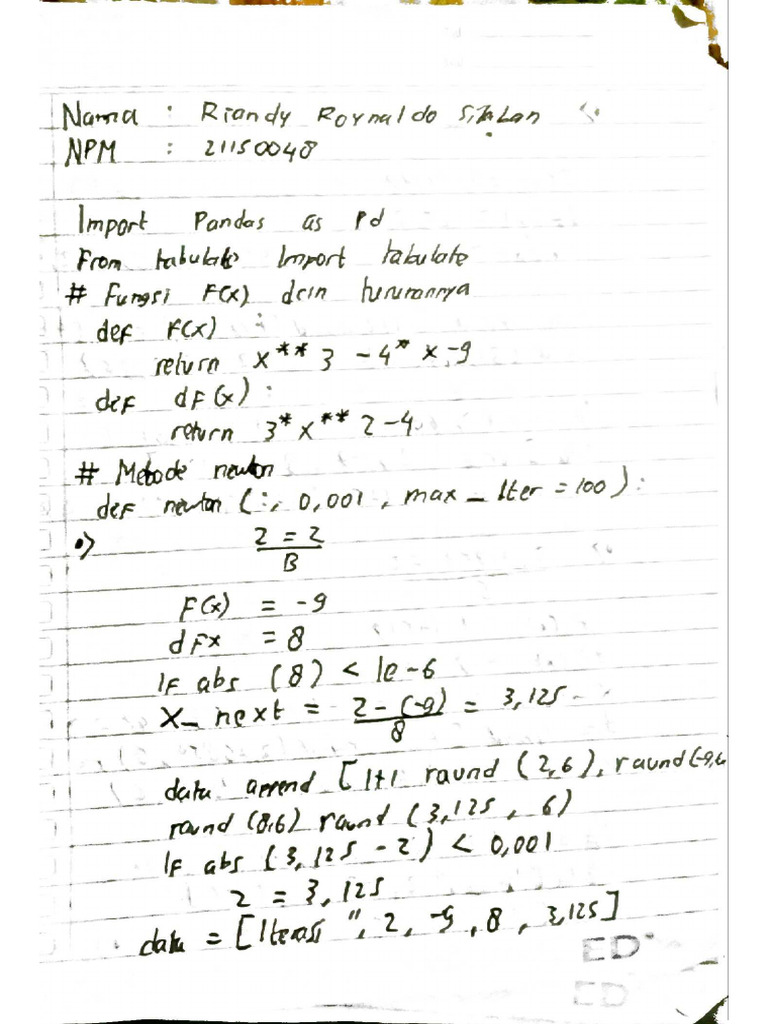 Nama : Riandy Roynaldo
NPM : 21150048
Import Pandas as Pd
From tabulate Import tabulate
# Fungsi F(x) dan turunannya
def F(x) :
return x ** 3 - 4 * x - 9
def dF(x) :
return 3 * x ** 2 - 4
# Metode newton
def newton ( : , 0,001 , max _ Iter = 100 ) :
2 = 2
B
F(x) = -9
dFx = 8
IF abs (8) < 1e-6
X_ next = 2-(-9) = 3,125
8
data append [1+1 raund (2,6), raund(-9,6
round (8,6) raund (3,125 , 6)
IF abs (3,125 - 2) < 0,001
2 = 3,125
data = [Iterasi ", 2, -9 , 8 , 3,125]
ED
ED